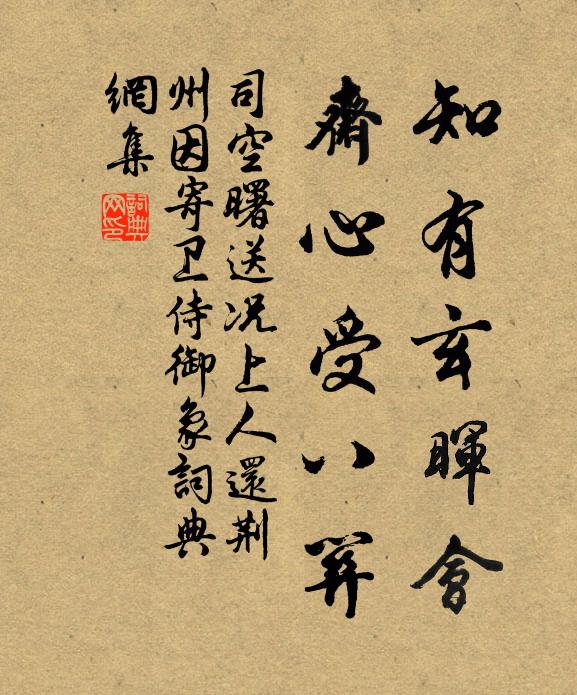 知有玄暉會
齋心受八關
司空曙送况上人還荆
州因寄卫侍御象詞典
網集
詞典
网印